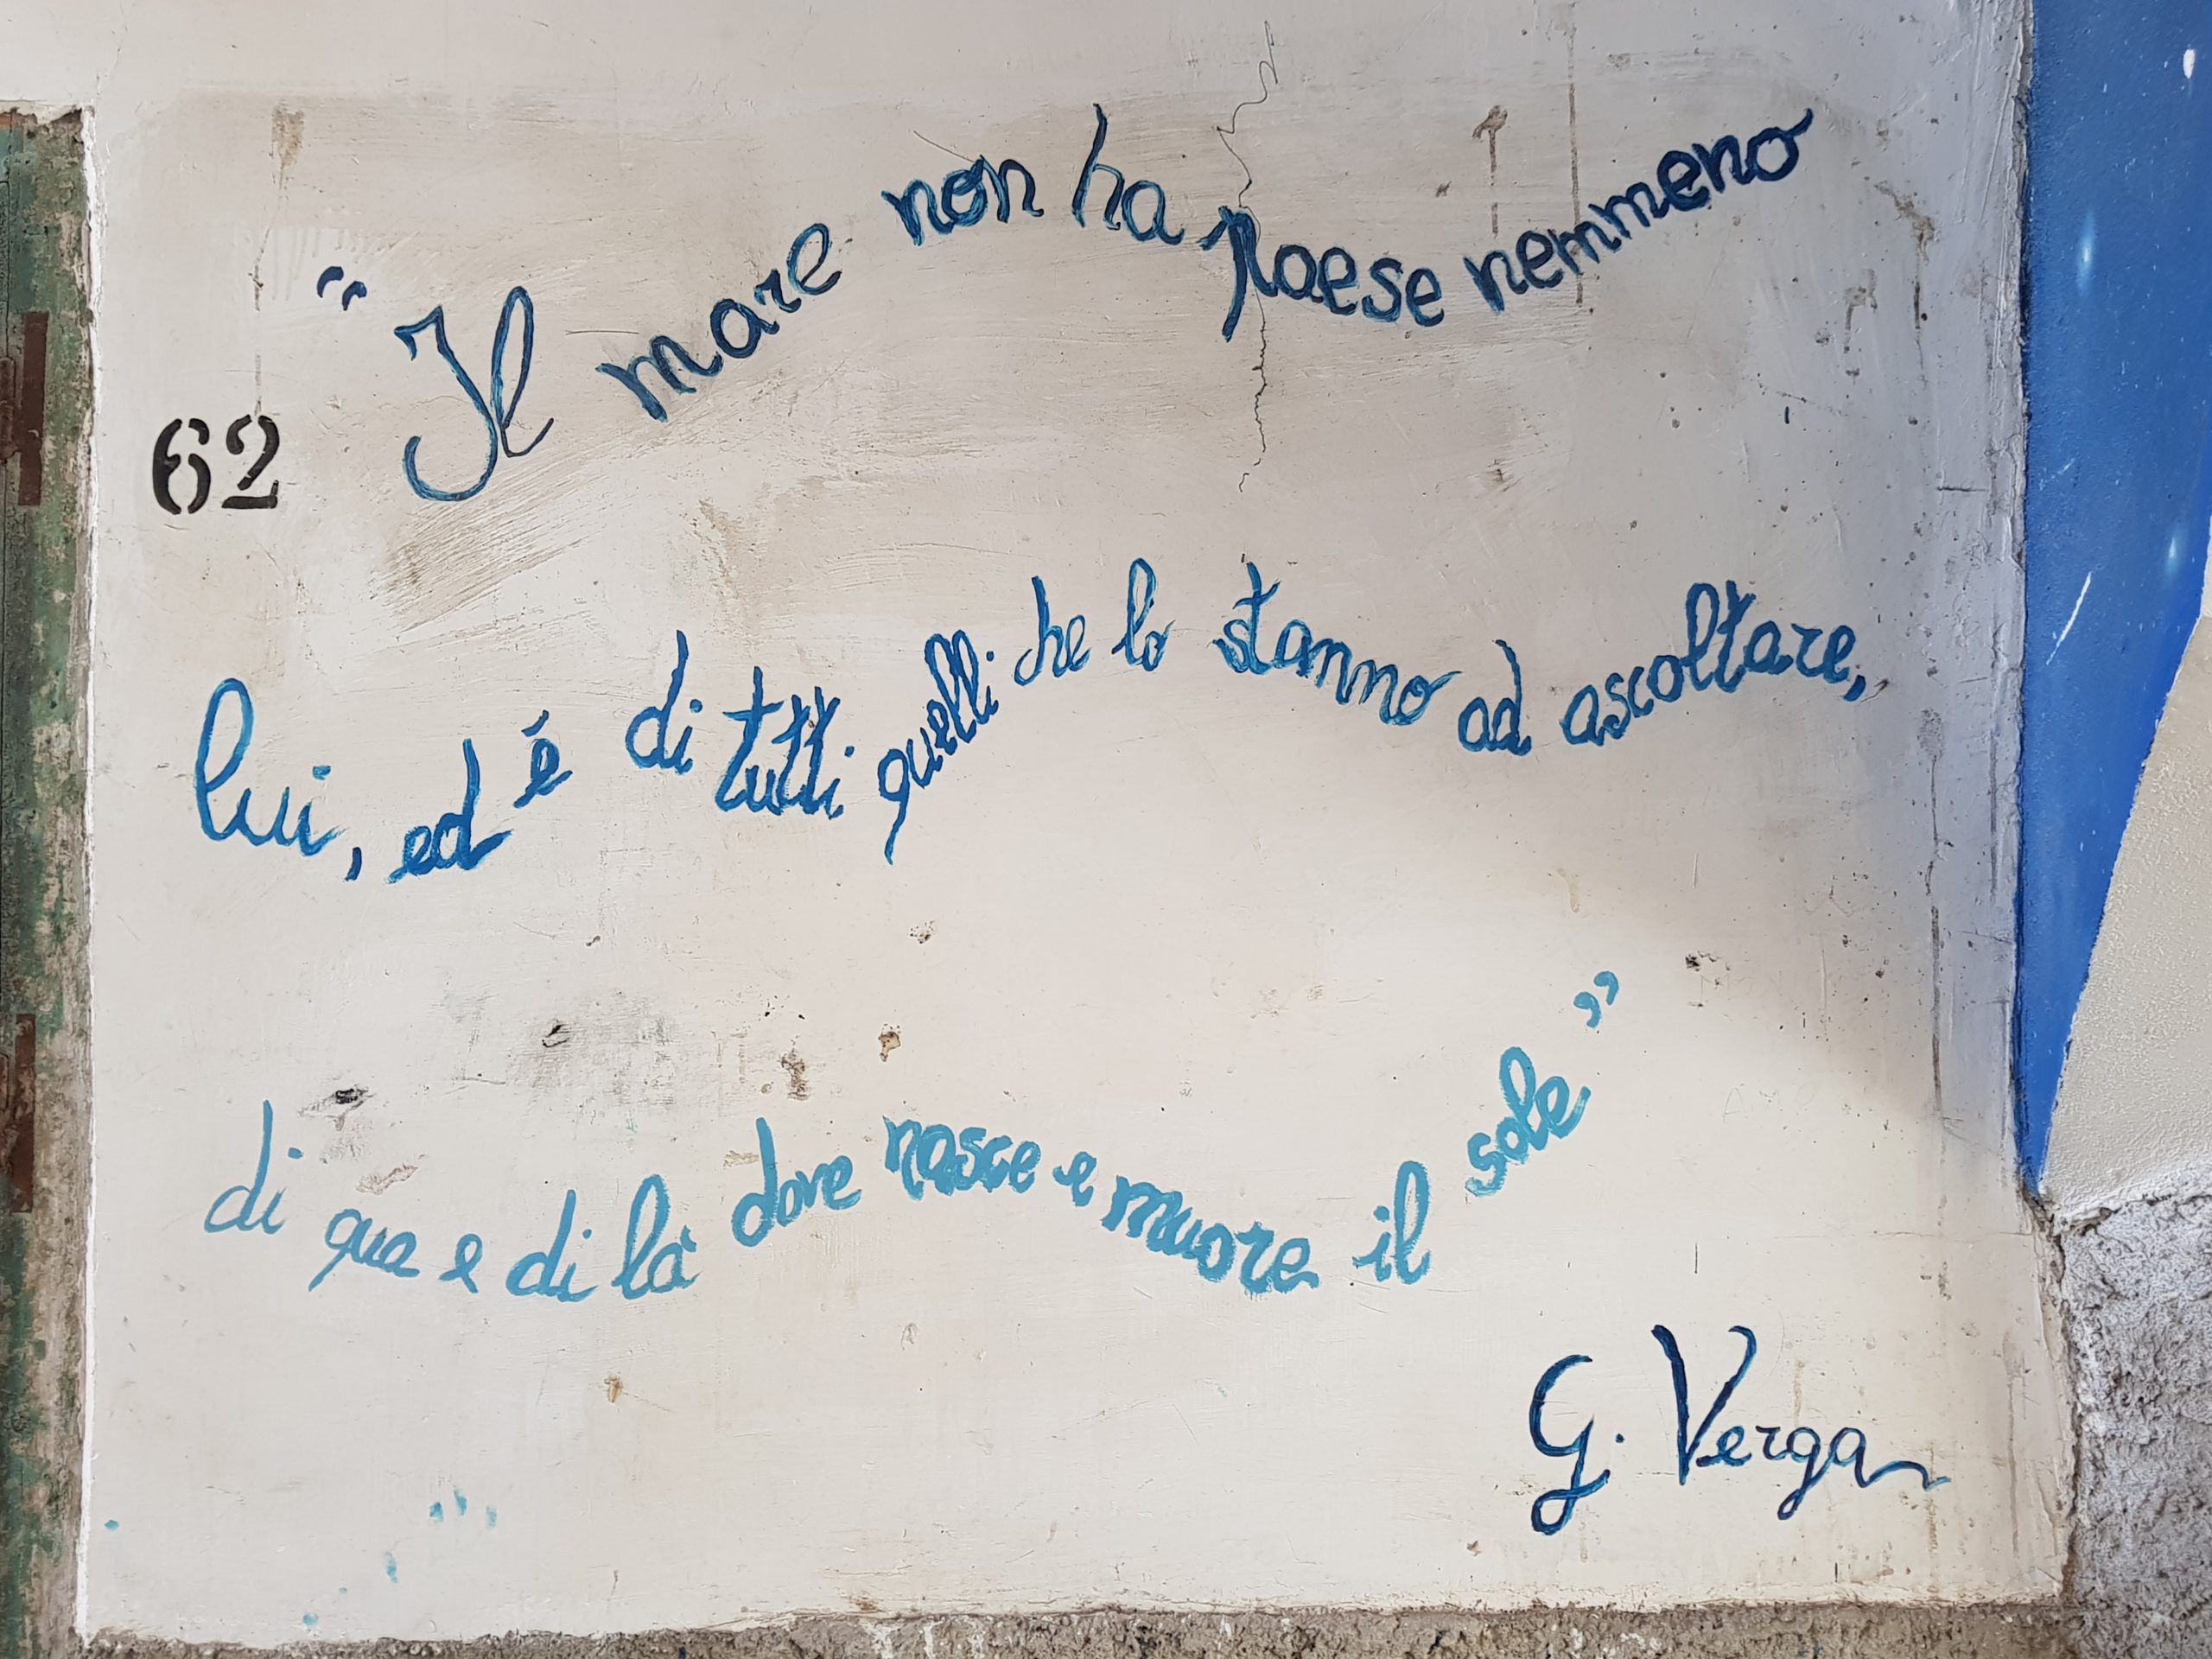 62
“Il mare non ha paese nemmeno
lui, ed é di tutti quelli che lo stanno ad ascoltare,
di qua e di là dove nasce e muore il sole”
G. Verga